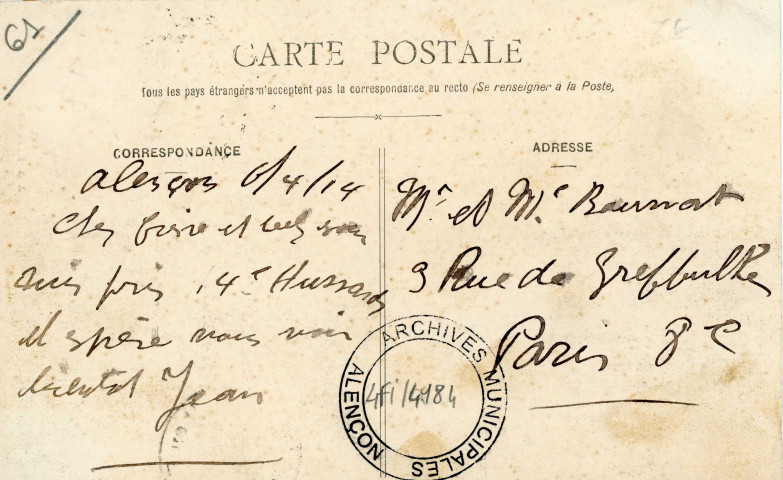 61
CARTE POSTALE
Tous les pays étrangers n'acceptent pas la correspondance au recto (Se renseigner à la Poste,
CORRESPONDANCE
Alençon 6/4/14
Cher frère et
suis pris . 4e Hussards
et espère vous voir
bientôt Jean
ADRESSE
Mr. et Me
9 Rue de Greffulhe
Paris 8e
ARCHIVES MUNICIPALES
ALENÇON
4Fi/4984